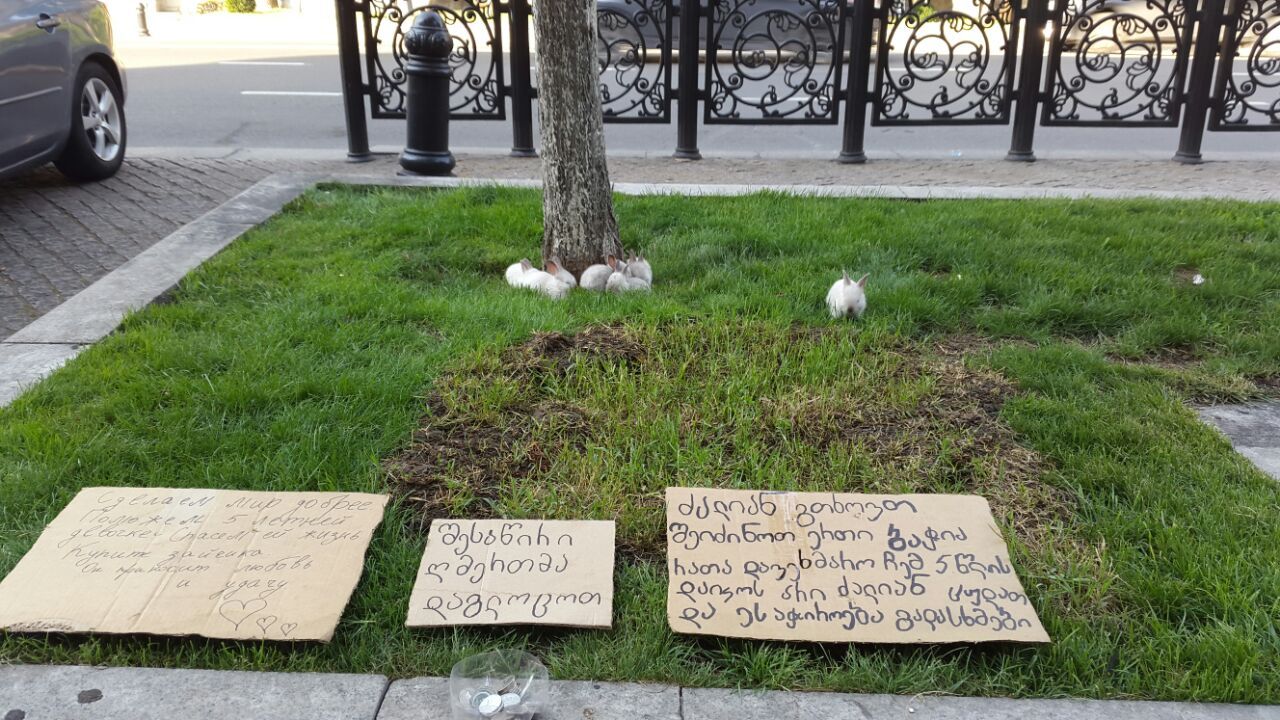 Сделаем мир добрее
Поможем 5 летней
девочкей Спасем ей жизнь
Купите зайчика.
Он приносит любовь
и удачу
შესწირი
ღმერთმა
დაგლოცოთ
ძალიან გთხოვთ
შეიძინოთ ერთი ბაჭია
რათა დავეხმარო ჩემ 5 წლის
დაიკოს არი ძალიან ცუდათ
და ეს აჭიროება გადასხმები